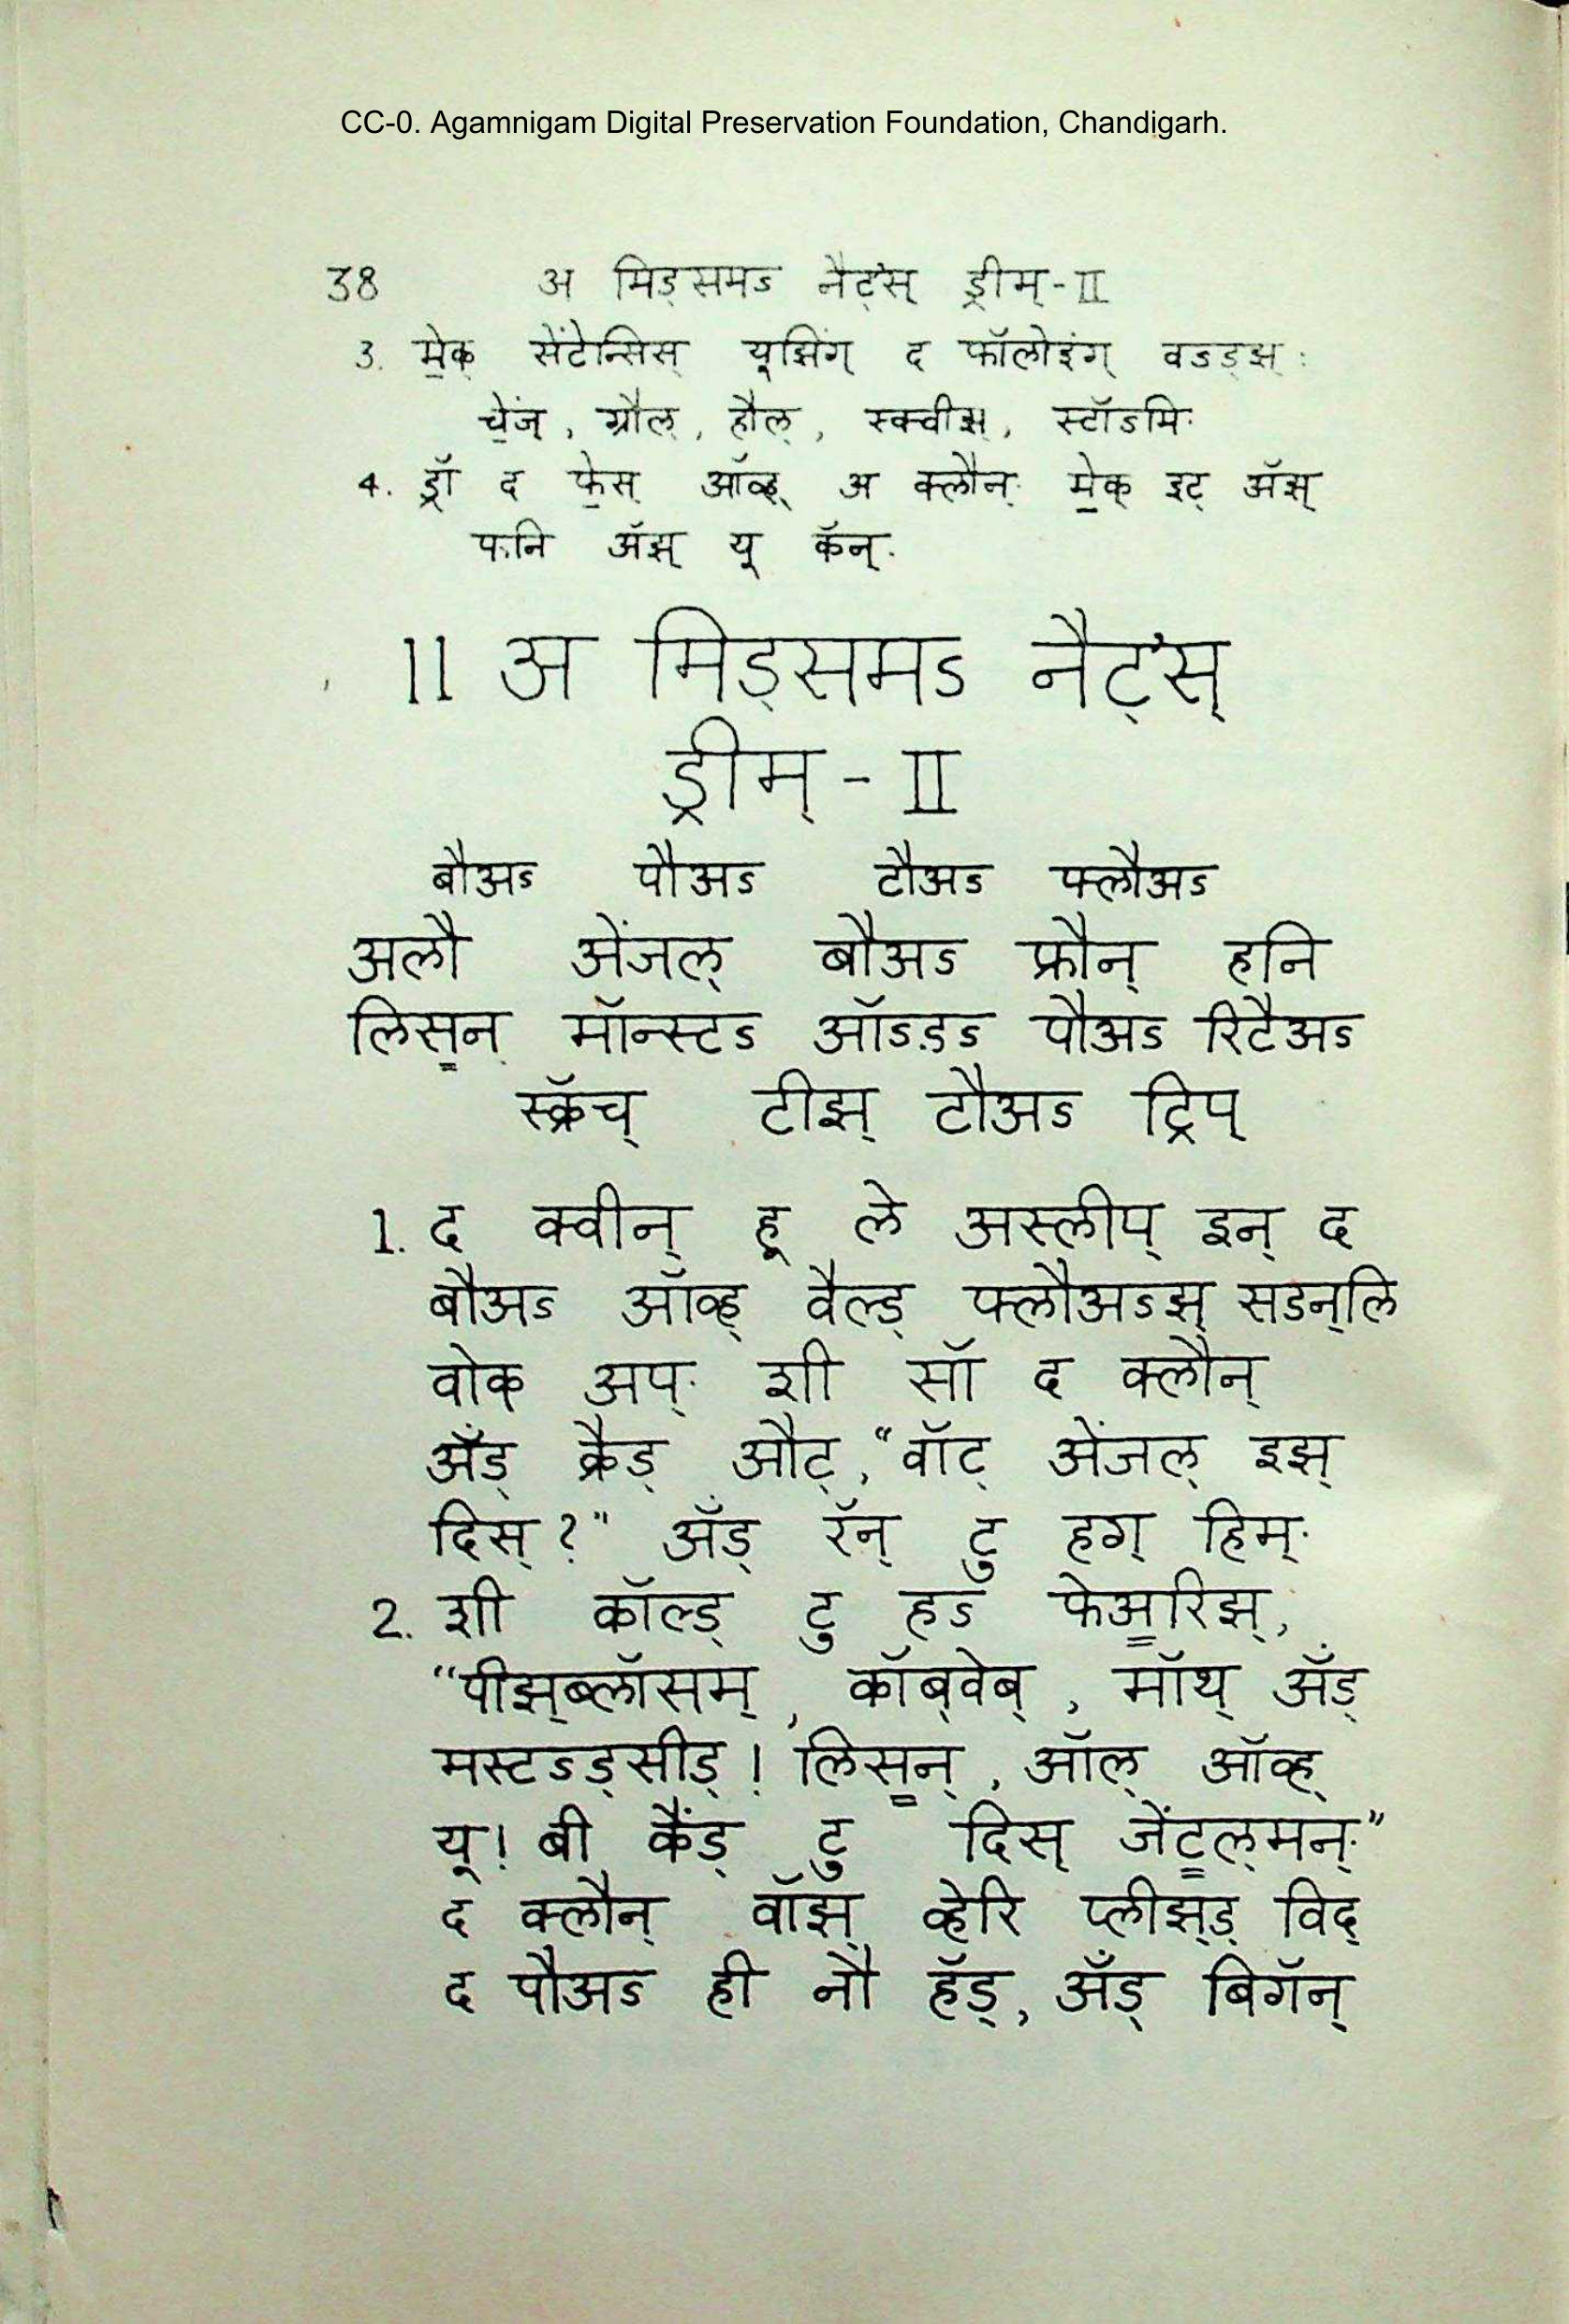 CC-0. Agamnigam Digital Preservation Foundation, Chandigarh.
38 अ मिड्समऽ नैट्'स् ड्रीम्-II
3. मे॒क् सेंटेन्सिस् यूझिंग् द फॉलोइंग् वऽड्झ्:
चे॒ंज्, ग्रौल्, हौल्, स्क्वीझ्, स्टॉऽमि.
4. ड्रॉ द फे॒स् ऑव्ह् अ क्लौन्. मे॒क् इट् ॲझ्
फनि ॲझ् यू कॅन्.
11 अ मिड्समऽ नैट्'स्
ड्रीम् - II
बौअऽ पौअऽ टौअऽ फ्लौअऽ
अलौ अेंजल् बौअऽ फ्रौन् हनि
लिस॒न् मॉन्स्टऽ ऑऽडऽ पौअऽ रिटैअऽ
स्क्रॅच् टीझ् टौअऽ ट्रिप्
1. द क्वीन् हू ले अस्लीप् इन् द
बौअऽ ऑव्ह् वैल्ड् फ्लौअऽझ् सडन्लि
वोक् अप्. शी सॉ द क्लौन्
ॲंड् क्रैड् औट्, "वॉट् अेंजल् इझ्
दिस्?" ॲंड् रॅन् टु हग् हिम्.
2. शी कॉल्ड् टु हऽ फेअ॒रिझ्,
"पीझ्ब्लॉसम्, कॉब्वेब्, मॉथ् ॲंड्
मस्टऽड्सीड्! लिस॒न्, ऑल् ऑव्ह्
यू! बी कैंड् टु दिस् जेंट॒ल्मन्."
द क्लौन् वॉझ् व्हेरि प्लीझ्ड् विद्
द पौअऽ ही नौ हॅड्, ॲंड् बिगॅन्